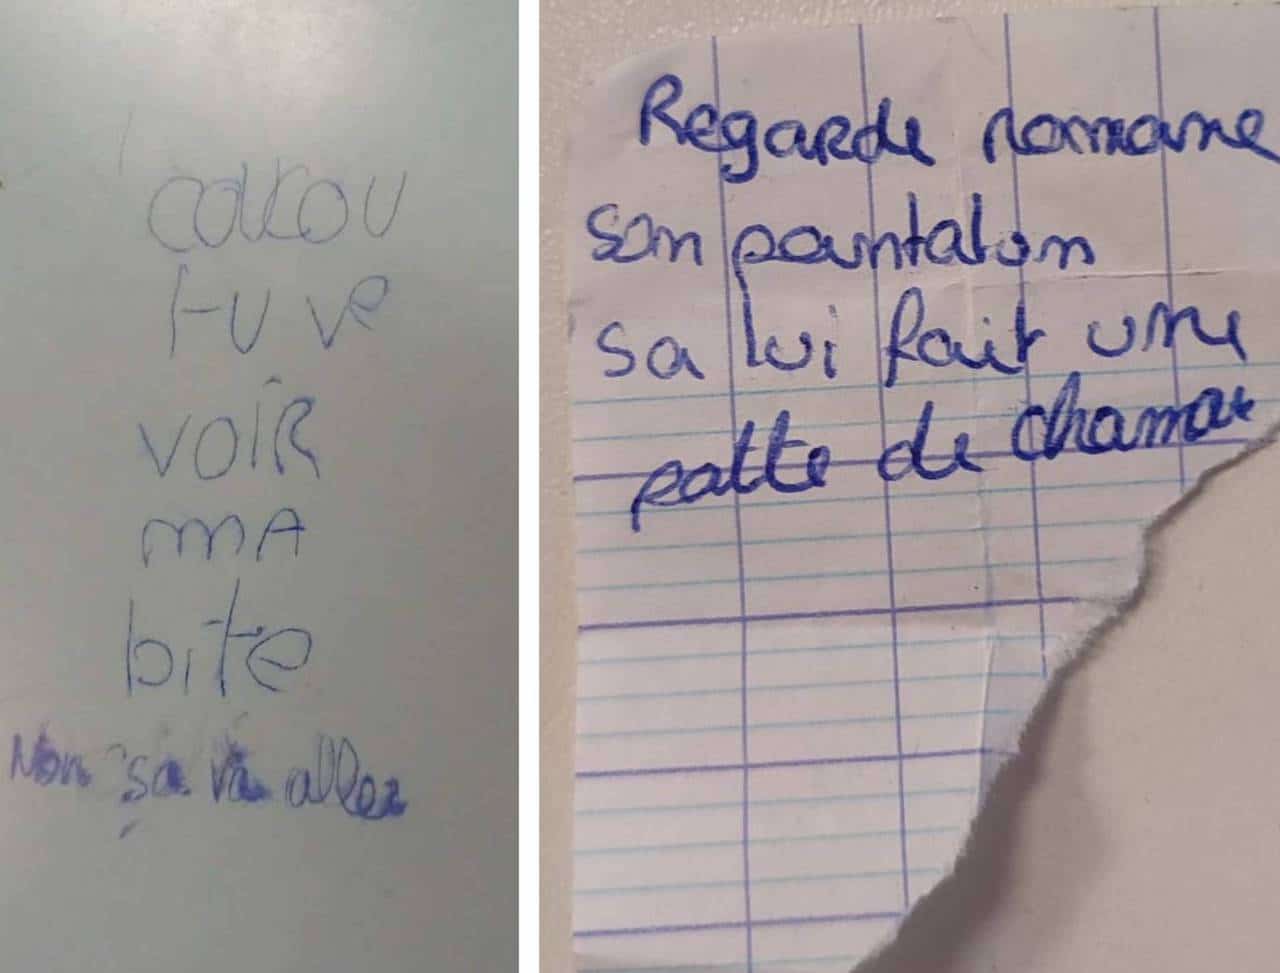 coucou
tu ve
voir
mA
bite
Non sa va aller
Regarde romane
son pantalon
sa lui fait une
patte de chamau